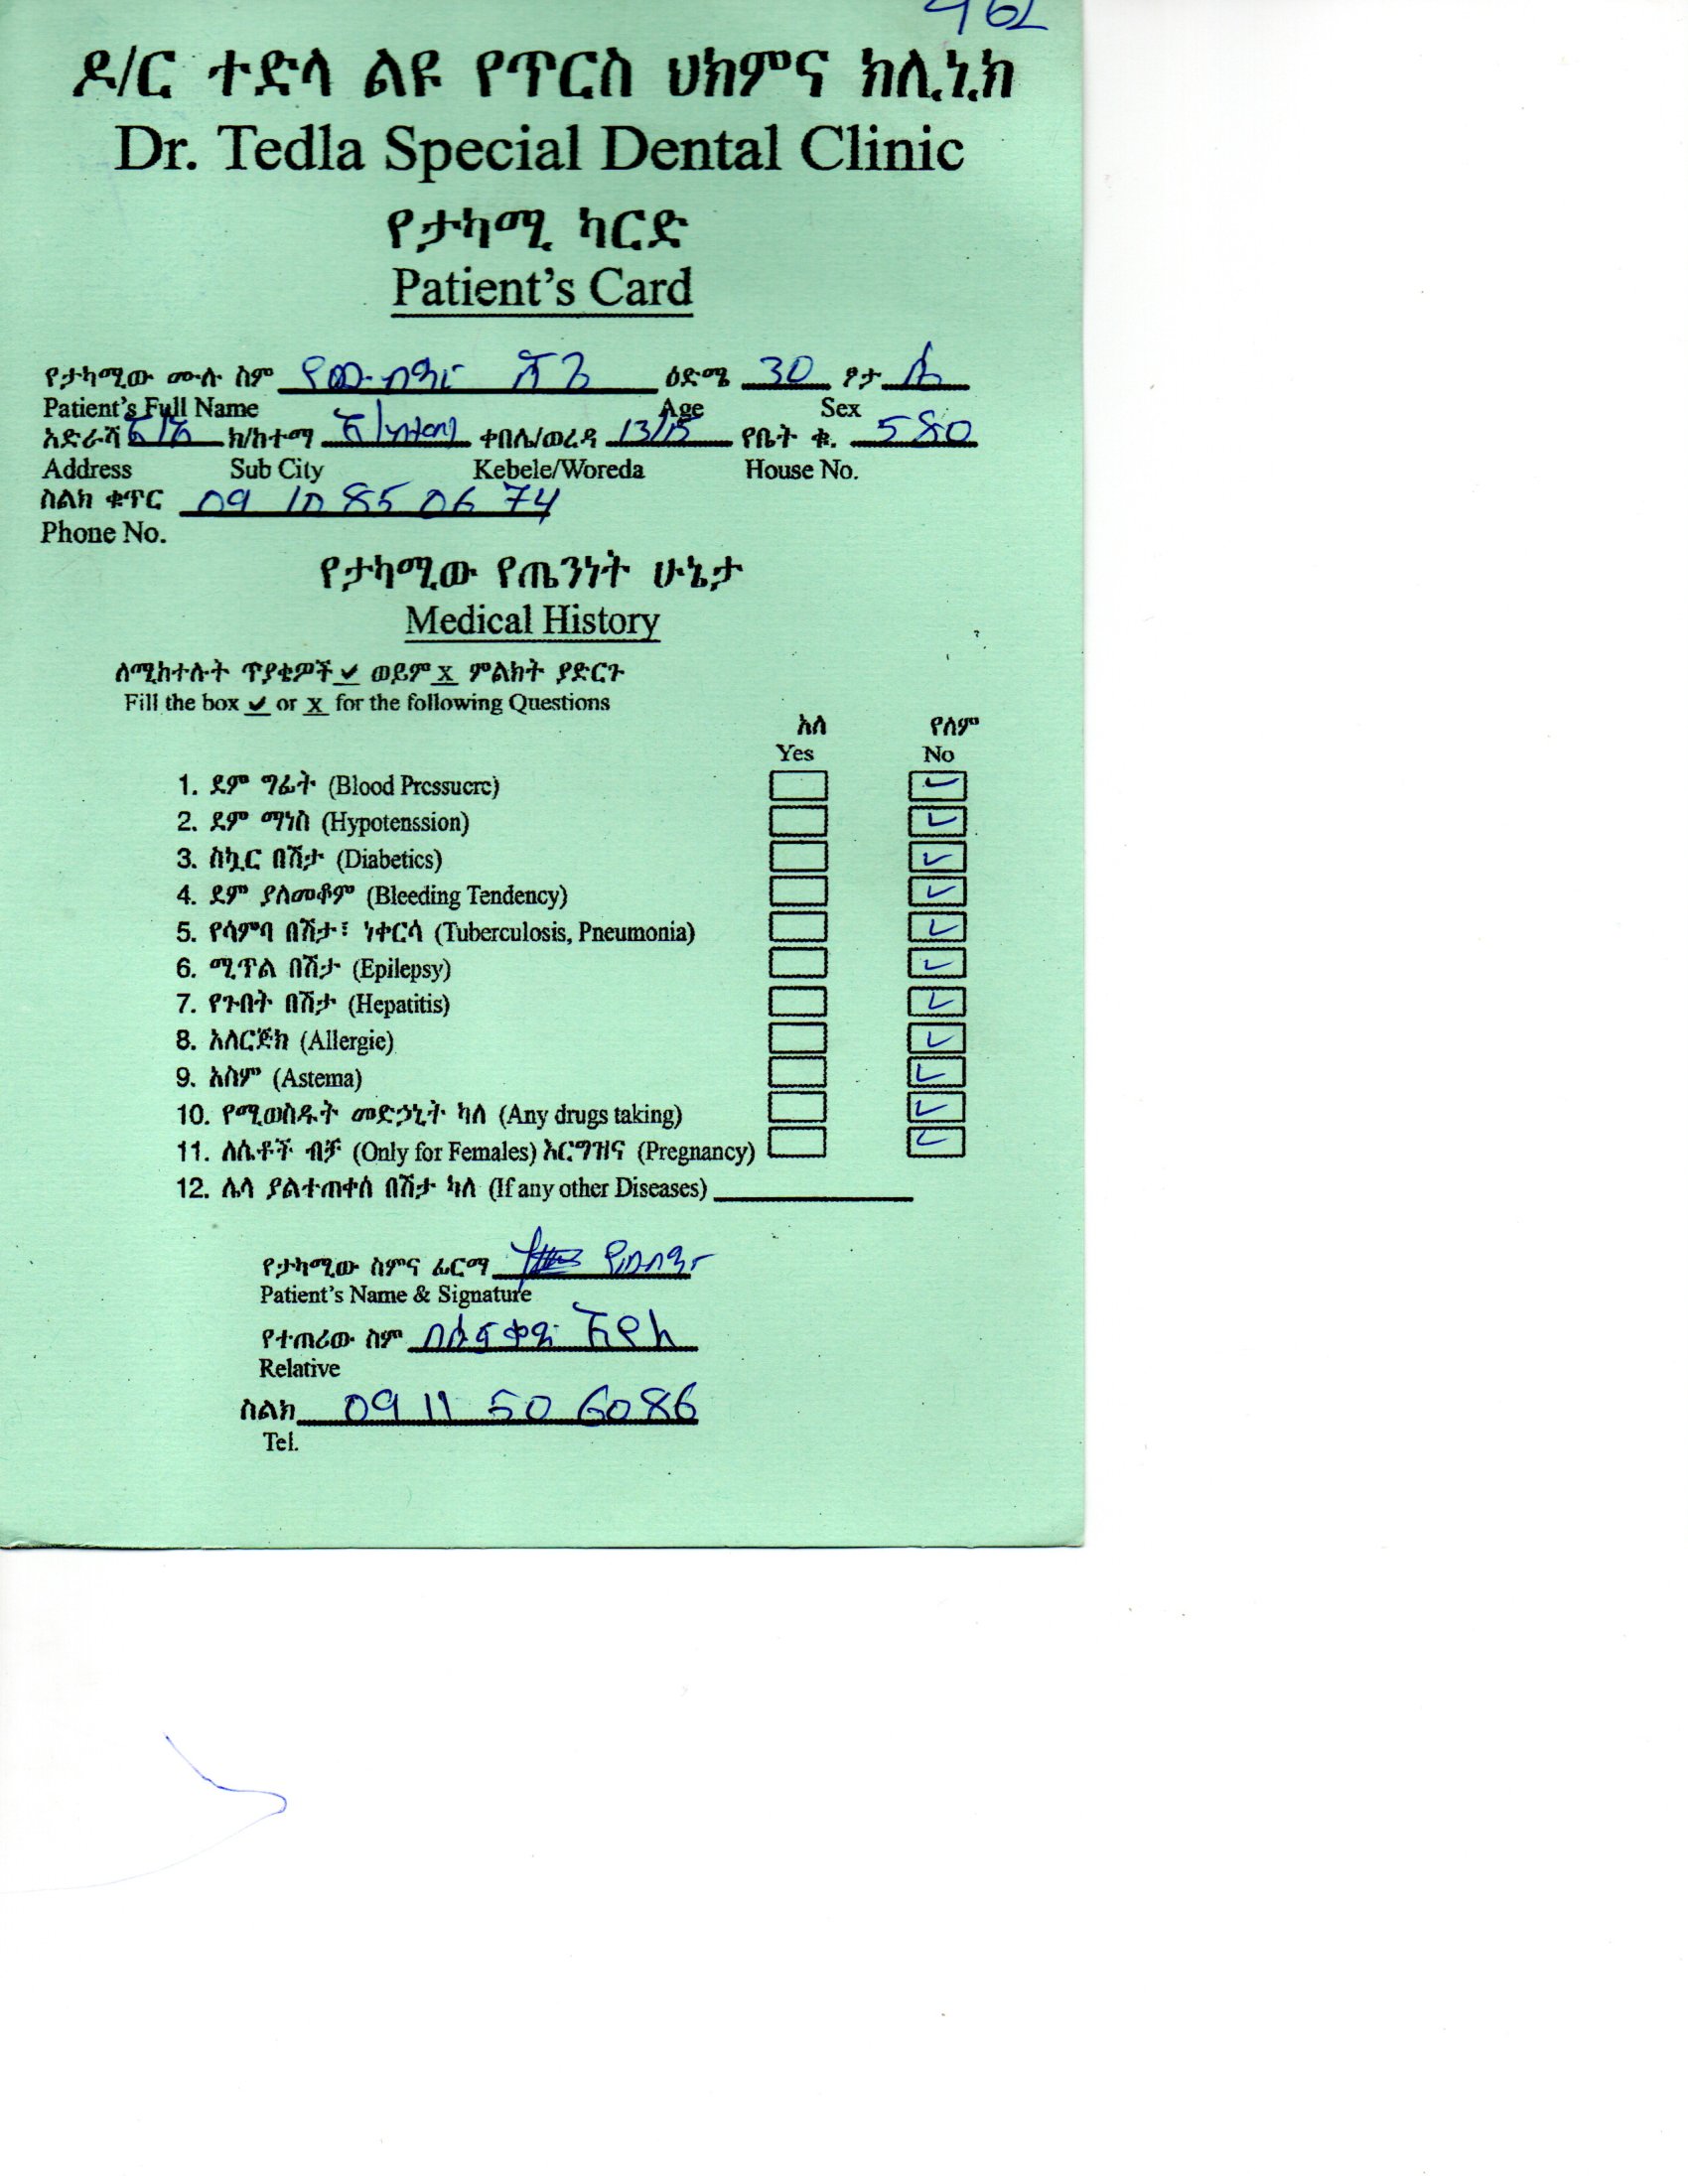 ዶ/ር ተድላ ልዩ የጥርስ ህክምና ክሊኒክ
Dr. Tedla Special Dental Clinic
የታካሚ ካርድ
Patient's Card
የታካሚው ሙሉ ስም የውብዳር ዕድሜ 30 ፆታ ሴ
Patient's Full Name Age Sex
አድራሻ አ/አ ክ/ከተማ ቀበሌ/ወረዳ 13/15 የቤት ቁ. 580
Address Sub City Kebele/Woreda House No.
ስልክ ቁጥር 09 10 85 06 74
Phone No.
የታካሚው የጤንነት ሁኔታ
Medical History
ለሚከተሉት ጥያቄዎች ✔ ወይም x ምልክት ያድርጉ
Fill the box ✔ or x for the following Questions
አለ የለም
Yes No
1. ደም ግፊት (Blood Pressuere) ✓
2. ደም ማነስ (Hypotenssion) ✓
3. ስኳር በሽታ (Diabetics) ✓
4. ደም ያለመቆም (Bleeding Tendency) ✓
5. የሳምባ በሽታ፣ ነቀርሳ (Tuberculosis, Pneumonia) ✓
6. ሚጥል በሽታ (Epilepsy) ✓
7. የጉበት በሽታ (Hepatitis) ✓
8. አለርጅክ (Allergie) ✓
9. አስም (Astema) ✓
10. የሚወስዱት መድኃኒት ካለ (Any drugs taking) ✓
11. ለሴቶች ብቻ (Only for Females) እርግዝና (Pregnancy) ✓
12. ሌላ ያልተጠቀሰ በሽታ ካለ (If any other Diseases)
የታካሚው ስምና ፊርማ የውብዳር
Patient's Name & Signature
የተጠሪው ስም
Relative
ስልክ 09 11 50 6086
Tel.